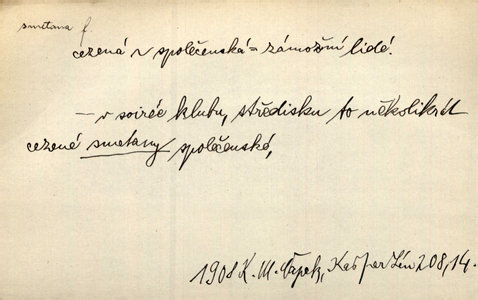 smetana f.
cezená ~ společenská = zámožní lidé.
— v soirée klubu, středisku to několikrát
cezené smetany společenské,
1908 K. M. Čapek, Kašpar Lén 208,14.